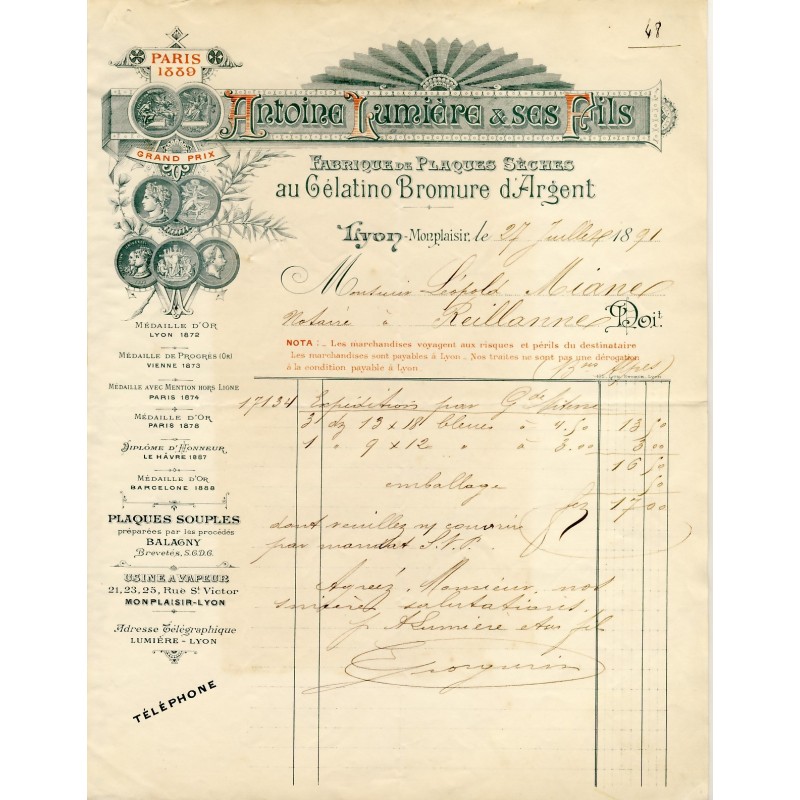 48
PARIS
1889
GRAND PRIX
Antoine Lumière & ses Fils
Fabrique de Plaques Sèches
au Gélatino Bromure d'Argent
Lyon-Monplaisir, le 27 Juillet 1891
Monsieur Léopold Miane
Notaire à Reillanne Doit.
NOTA :_ Les marchandises voyagent aux risques et périls du destinataire
Les marchandises sont payables à Lyon._ Nos traites ne sont pas une dérogation
à la condition payable à Lyon.
MÉDAILLE D'OR
LYON 1872
MÉDAILLE DE PROGRÈS (OR)
VIENNE 1873
MÉDAILLE AVEC MENTION HORS LIGNE
PARIS 1874
MÉDAILLE D'OR
PARIS 1878
DIPLÔME D'HONNEUR
LE HÂVRE 1887
MÉDAILLE D'OR
BARCELONE 1888
PLAQUES SOUPLES
préparées par les procédés
BALAGNY
Brevetés, S.G.D.G.
USINE A VAPEUR
21, 23, 25, Rue St Victor
MONPLAISIR-LYON
Adresse Télégraphique
LUMIÈRE - LYON
TÉLÉPHONE
17134 Expédition par Gde Vitesse
3 dz 13 x 18 bleues à 4.50 13 50
1 " 9 x 12 " à 3.00 3 00
16 50
emballage 50
17 00
dont veuillez ny couvrir
par mandat S.V.P.
Agréez, Monsieur, nos
sincères salutations.
p. A Lumière et ses fils